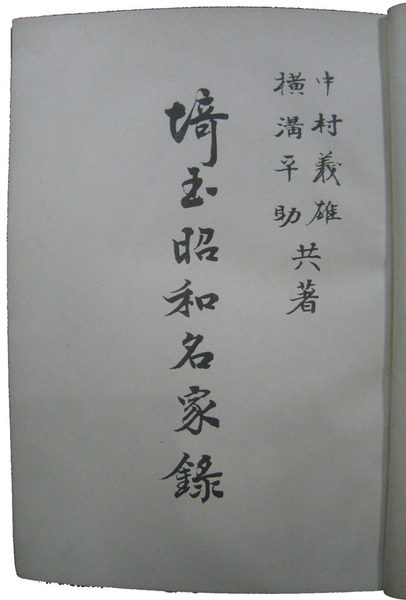 中村義雄
横溝平助
共著
埼玉昭和名家録